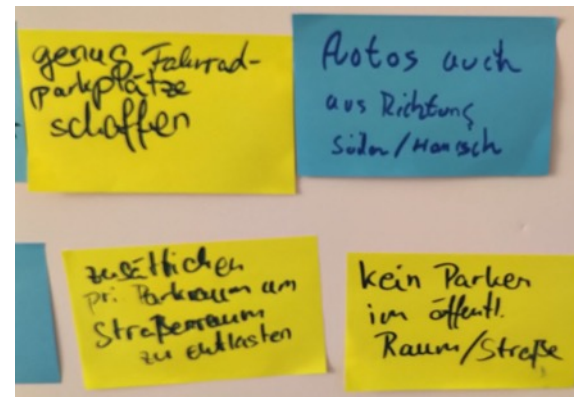 genug Fahrrad-
parkplätze
schaffen
Autos auch
aus Richtung
Süden/
zusätzlichen
pr. Parkraum um
Straßenraum
zu entlasten
kein Parken
im öffentl.
Raum/Straße